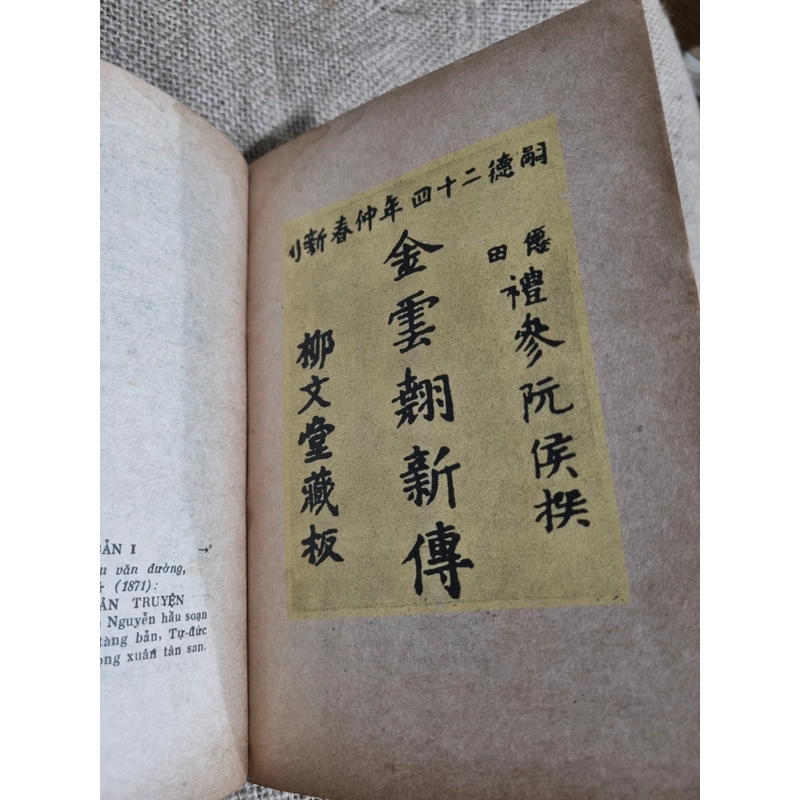 BẢN I →
u văn đường,
4 (1871):
ẢN TRUYỆN
Nguyễn hầu soạn
tàng bản, Tự-đức
ong xuân tân san.
嗣德二十四年仲春新刊
僊田
禮參阮侯撰
金雲翹新傳
柳文堂藏板